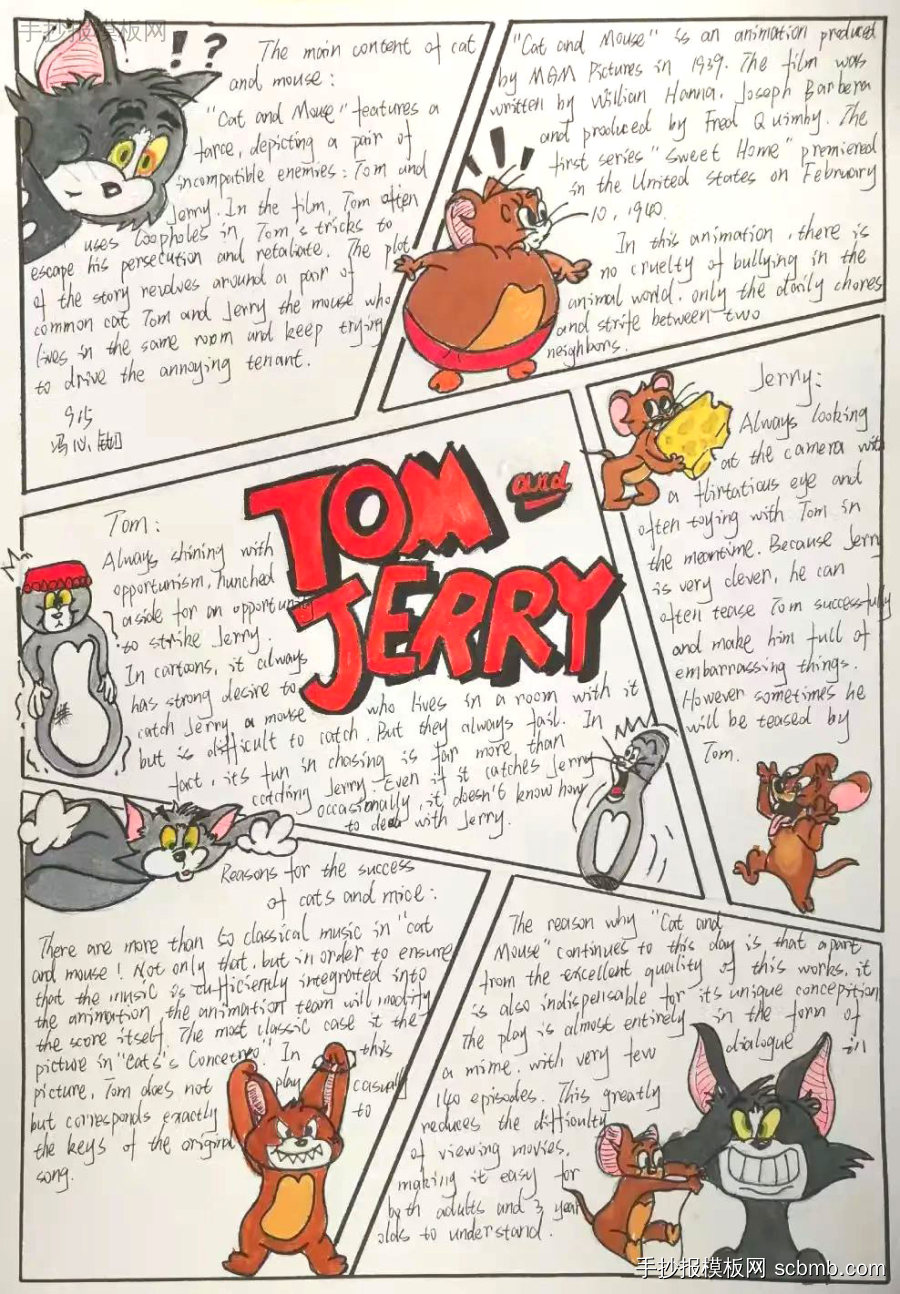 手抄报模板网
! ?
The main content of cat
and mouse:
"Cat and Mouse" features a
farce, depicting a pair of
incompatible enemies: Tom and
Jerry. In the film, Tom often
uses loopholes in Tom's tricks to
escape his persecution and retaliate. The plot
of the story revolves around a pair of
common cat Tom and Jerry the mouse who
lives in the same room and keep trying
to drive the annoying tenant.
915
"Cat and Mouse" is an animation produced
by MGM Pictures in 1939. The film was
written by Willian Hanna, Joseph Barbera
and produced by Fred Quimby. The
first series "Sweet Home" premiered
in the United States on February
10, 1940.
In this animation, there is
no cruelty of bullying in the
animal world, only the daily chores
and strife between two
neighbors.
TOM and
JERRY
Tom:
Always shining with
opportunism, hunched
aside for an opportunity
to strike Jerry.
In cartoons, it always
has strong desire to
catch Jerry a mouse who lives in a room with it
but is difficult to catch. But they always fail. In
fact, its fun in chasing is far more than
catching Jerry. Even if it catches Jerry
occasionally, it doesn't know how
to deal with Jerry.
Jerry:
Always looking
at the camera with
a flirtatious eye and
often toying with Tom in
the meantime. Because Jerry
is very clever, he can
often tease Tom successfully
and make him full of
embarrassing things.
However sometimes he
will be teased by
Tom.
Reasons for the success
of cats and mice:
There are more than 50 classical music in "cat
and mouse! Not only that, but in order to ensure
that the music is sufficiently integrated into
the animation, the animation team will modify
the score itself. The most classic case it the
picture in "Cats's Concetno" In this
picture, Tom does not play casually
but corresponds exactly to
the keys of the original
song.
The reason why "Cat and
Mouse" continues to this day is that apart
from the excellent quality of this works, it
is also indispensable for its unique conception
the play is almost entirely in the form of
a mime, with very few dialogue in
140 episodes. This greatly
reduces the difficulty
of viewing movies,
making it easy for
both adults and 3 year
olds to understand.
手抄报模板网 scbmb.com